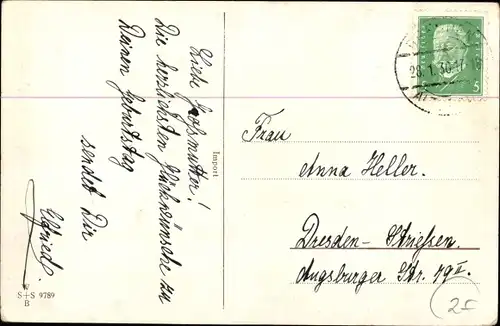 Liebe Großmutter!
Die herzlichsten Glückwünsche zu
Deinem Geburtstag
sendet Dir
Elfriede.
Import
W
S+S 9789
B
28.1.30.17
5
Frau
Anna Heller.
Dresden-Striesen.
Augsburger Str. 79 II.
2.-